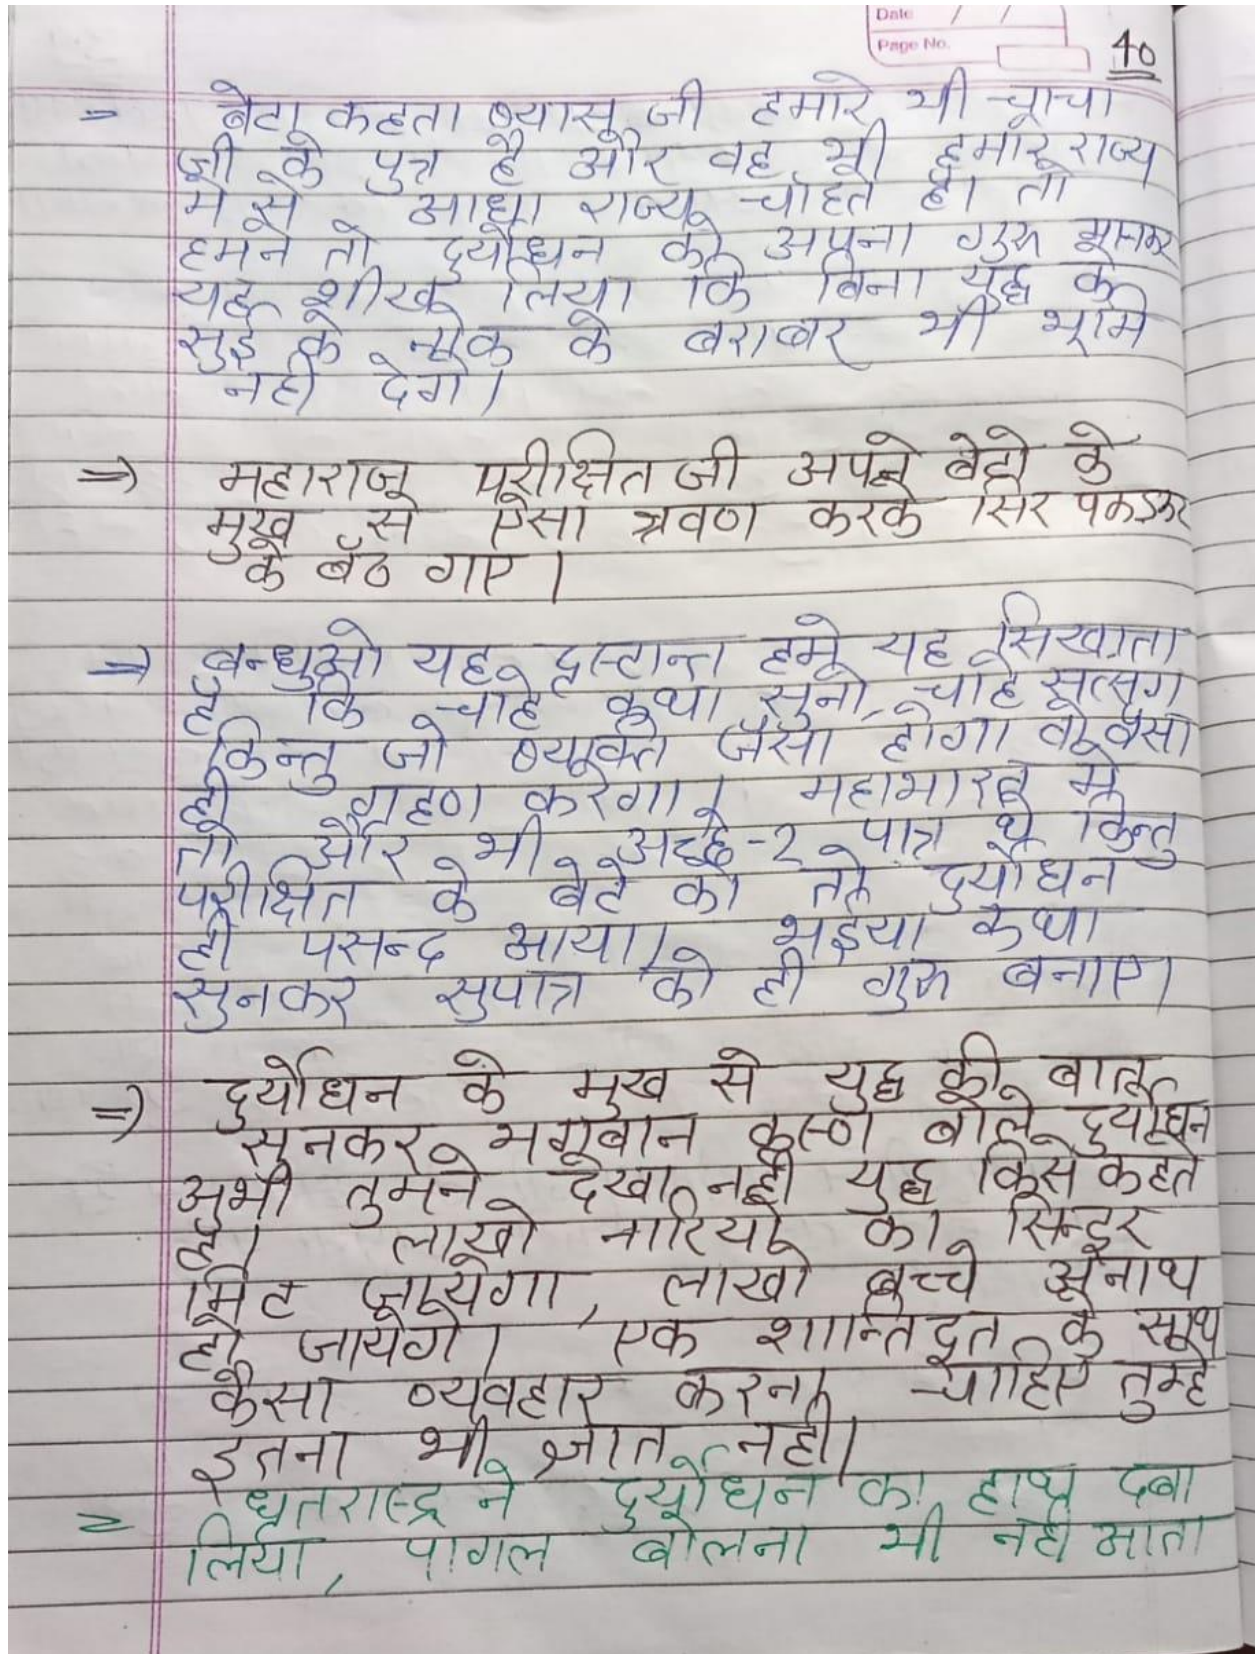 Date / /
Page No.
40
= बेटा कहता ब्यास जी हमारे भी चाचा
जी के पुत्र है और वह भी हमारे राज्य
मे से आधा राज्य चाहते है। तो
हमने तो दुर्योधन को अपना गुरु मानकर
यह शीख लिया कि बिना युद्ध के
सुई के नोक के बराबर भी भूमि
नही देगे।
=> महाराज परीक्षित जी अपने बेटो के
मुख से ऐसा श्रवण करके सिर पकडकर
के बैठ गए।
=> बन्धुओ यह दृस्टान्त हमे यह सिखाता
है कि चाहे कथा सुनो, चाहे सत्संग
किन्तु जो ब्यक्ति जैसा होगा वह वैसा
ही ग्रहण करेगा। महाभारत मे
तो और भी अच्छे-२ पात्र थे किन्तु
परीक्षित के बेटे को तो दुर्योधन
ही पसन्द आया। भईया कथा
सुनकर सुपात्र को ही गुरु बनाए।
=> दुर्योधन के मुख से युद्ध की बात
सुनकर भगवान कृस्ण बोले दुर्योधन
अभी तुमने देखा नही युद्ध किसे कहते
है। लाखो नारियो का सिन्दुर
मिट जायेगा, लाखो बच्चे अनाथ
हो जायेगे। एक शान्तिदूत के साथ
कैसा व्यवहार करना चाहिए तुम्हे
इतना भी ज्ञात नही।
= धृतरास्ट्र ने दुर्योधन का हाथ दबा
लिया, पागल बोलना भी नही आता